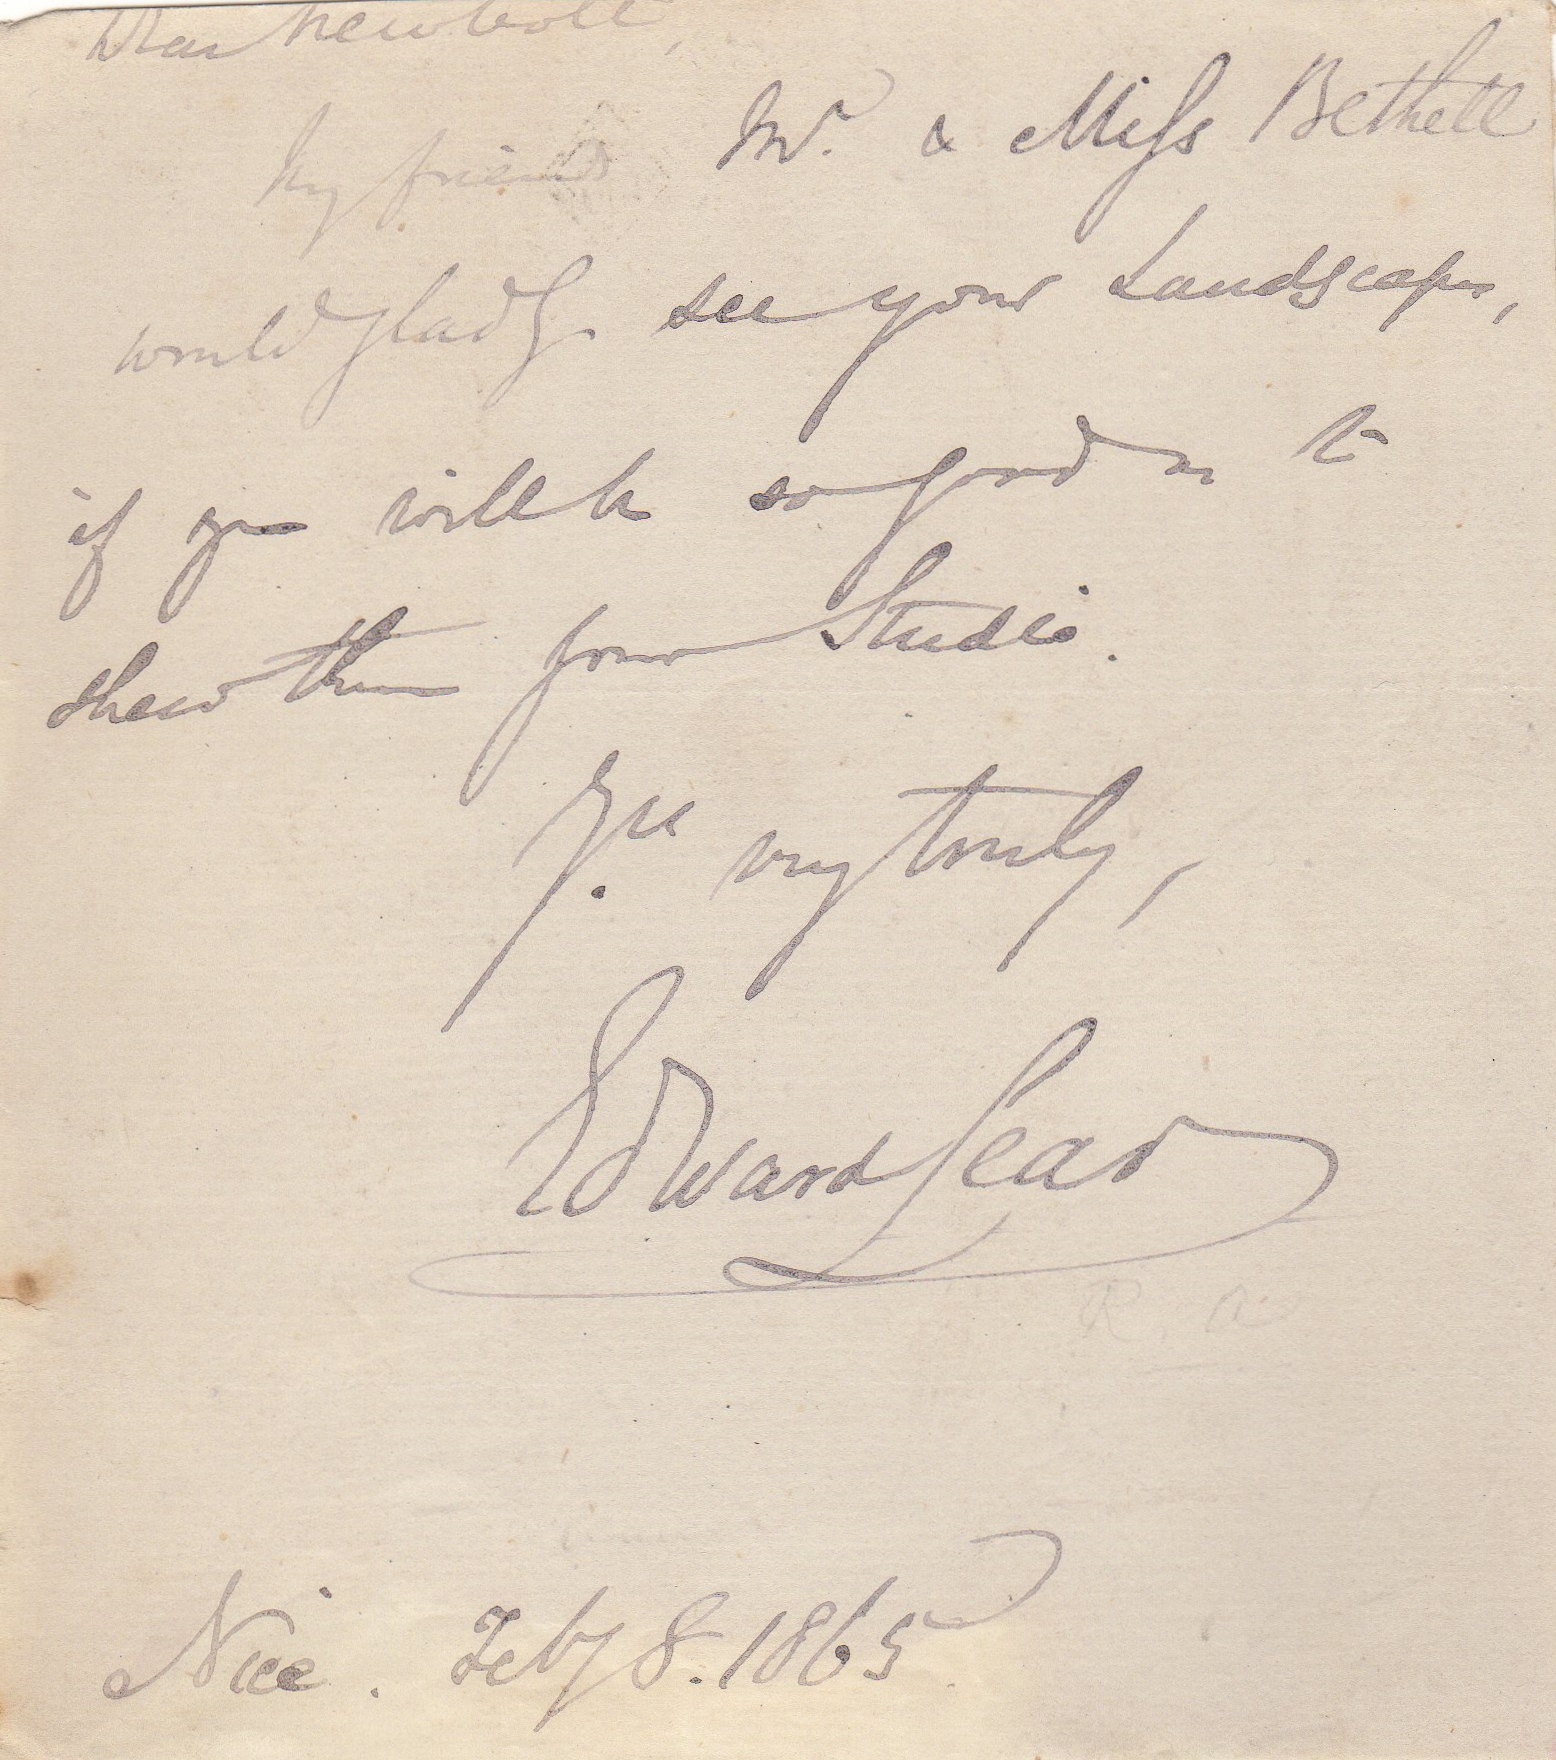 Dear Newbolt,
My friends Mr. & Miss Bethell
would gladly see your Landscapes,
if you will be so good as to
shew them your Studio.
Yrs. very truly,
Edward Lear
R. A
Nice. Feby 8. 1865